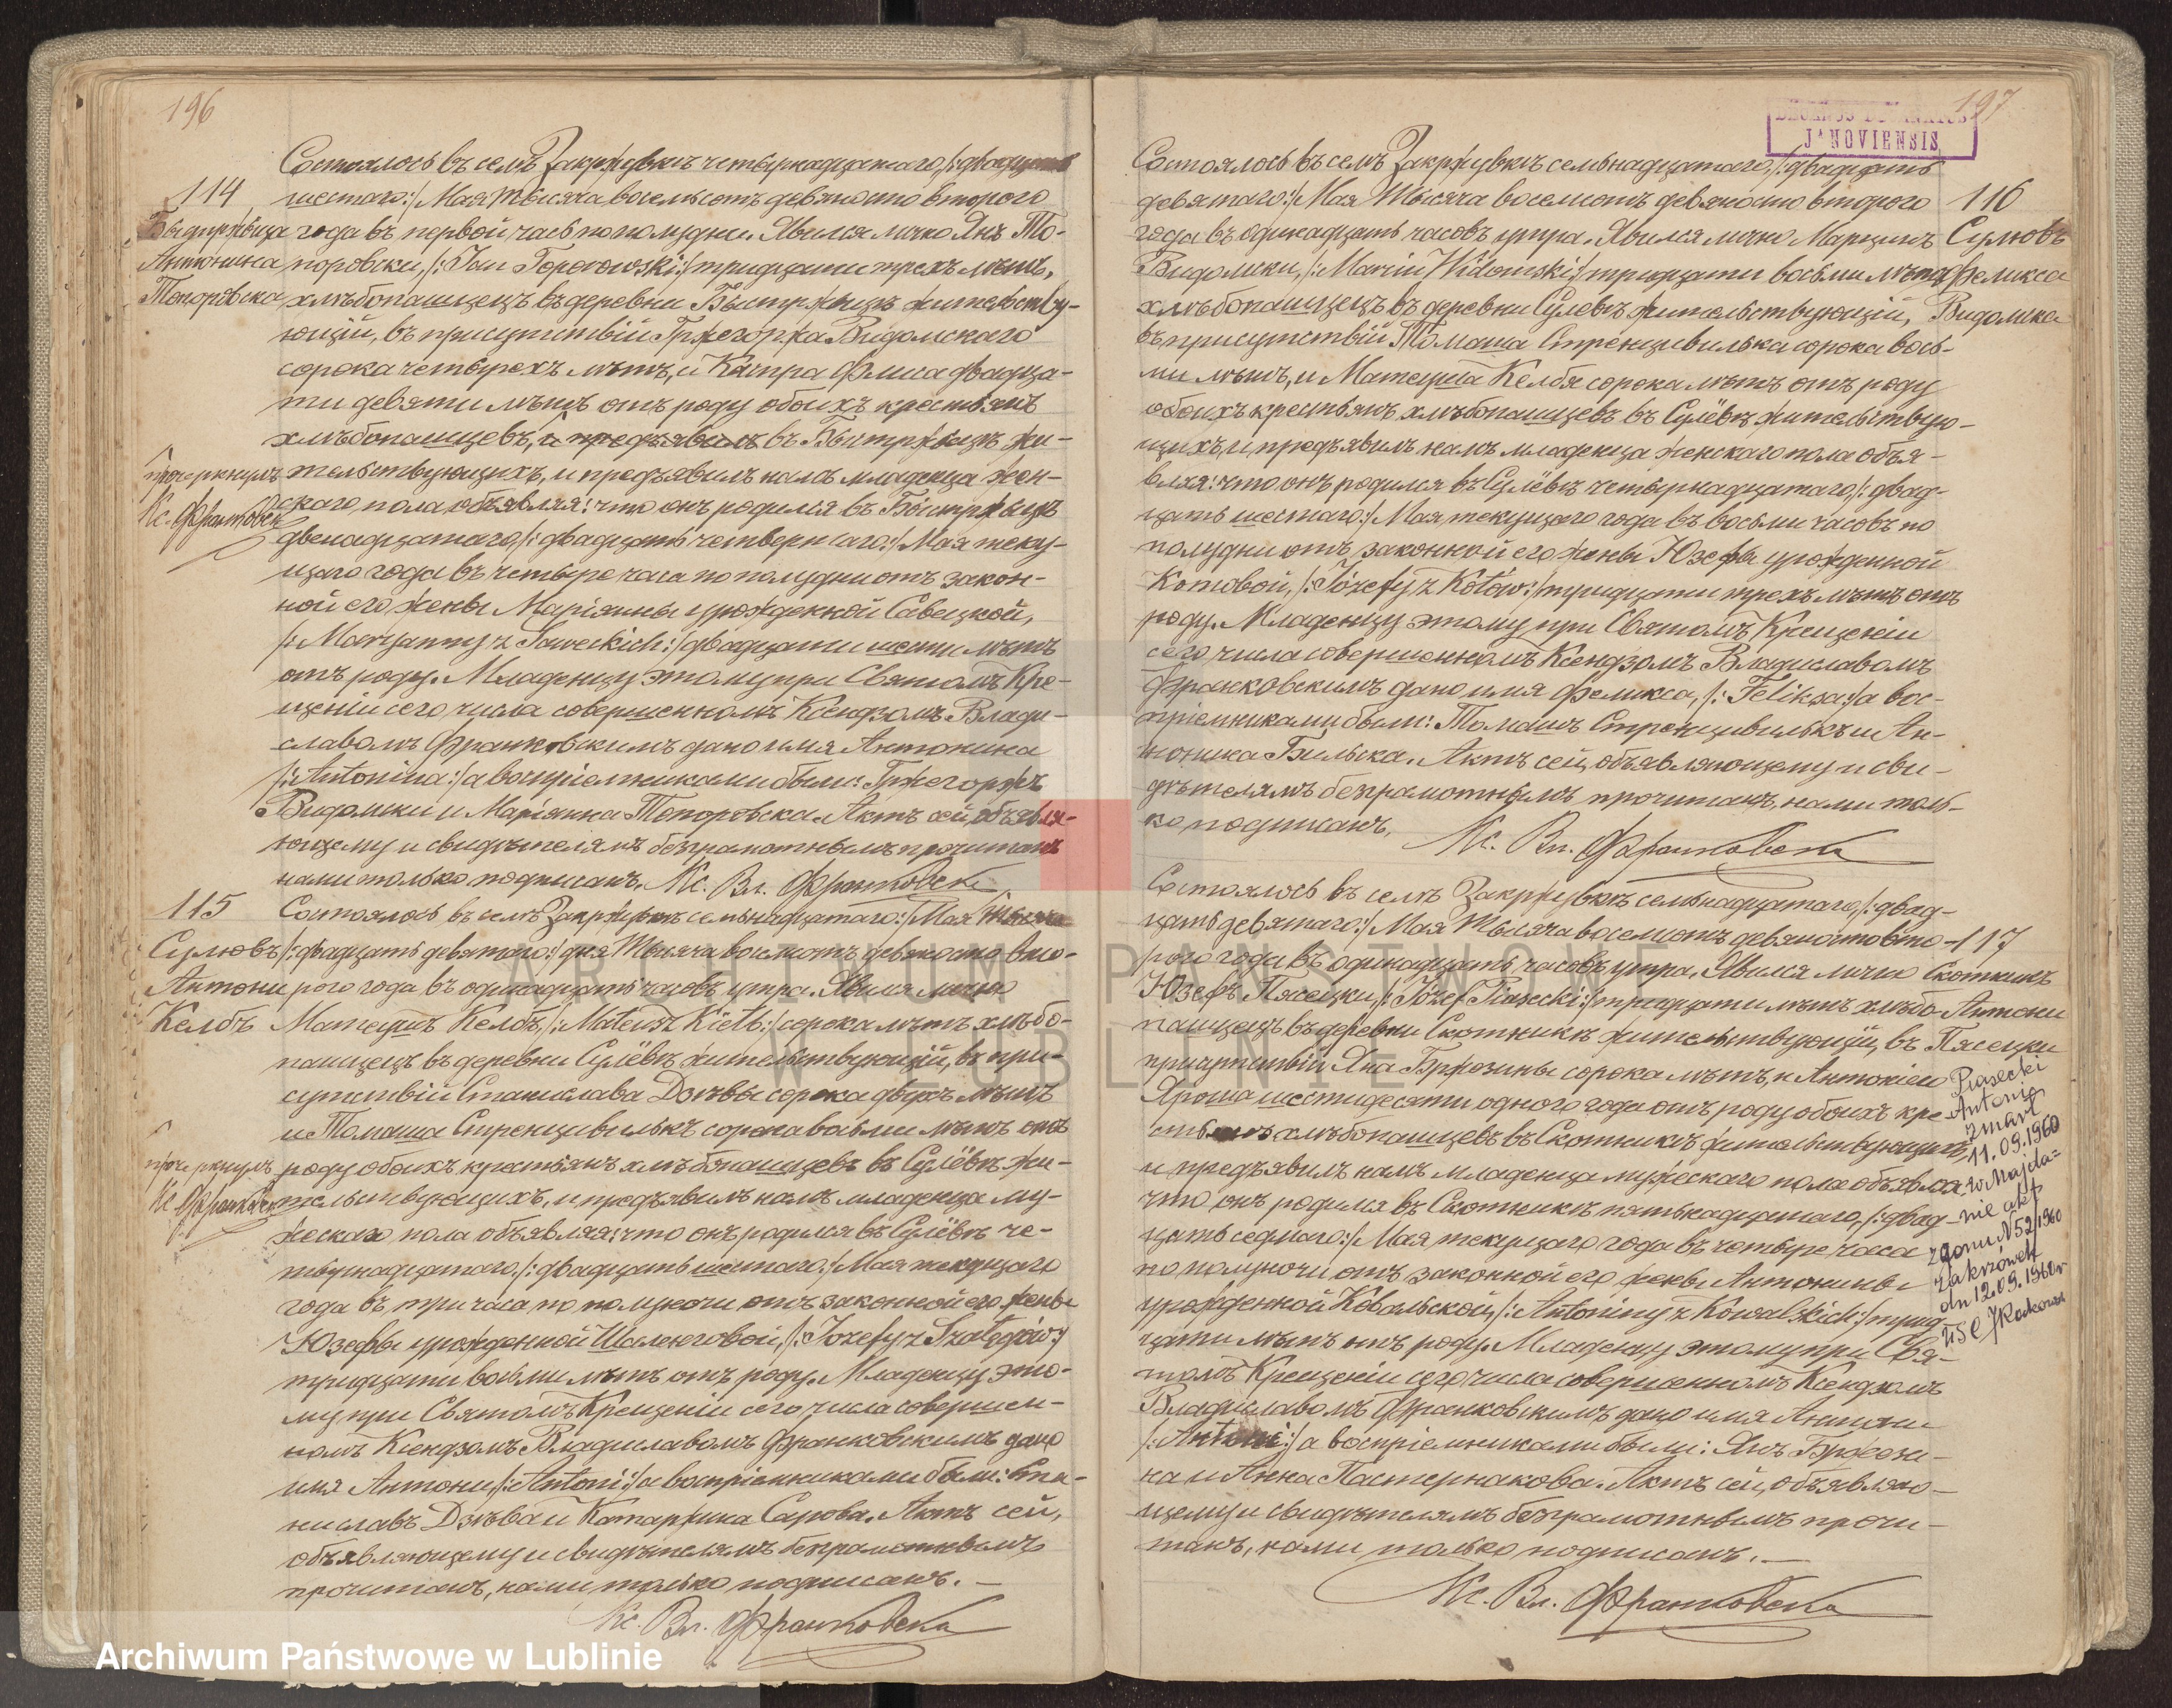 196
Состоялось въ селѣ Закржувкѣ четырнадцатаго /:двадцать
114
шестаго:/ Мая Тысяча восемьсотъ девяносто второго
Быстржыца
года въ первой часъ по полудни. Явился лично Янъ То-
Антонина
поровски, /:Jan Toporowski:/ тридцати трехъ лѣтъ,
Топоровска
хлѣбопашецъ въ деревни Быстржицѣ жительству-
ющій, въ присутствіи Гржегоржа Видомскаго
сорока четырехъ лѣтъ, и Каспра Флиса двадца-
ти девяти лѣтъ отъ роду обоихъ крестьянъ
хлѣбопашцевъ, и предъявилъ въ Быстржицѣ жи-
прочеркнулъ
тельствующихъ, и предъявилъ намъ младенца жен-
Кс. Франковски
скаго пола объявляя: что онъ родился въ Быстржицѣ
двенадцатаго /:двадцать четвертаго:/ Мая теку-
щаго года въ четыре часа по полудни отъ закон-
ной его жены Маріянны урожденной Савецкой,
/:Maryanny z Saweckich:/ двадцати шести лѣтъ
отъ роду. Младенцу этому при Святомъ Кре-
щеніи сего числа совершенномъ Ксендзомъ Влади-
славомъ Франковскимъ дано имя Антонина
/:Antonina:/ а воспріемниками были: Гржегоржъ
Видомски и Маріянна Топоровска. Актъ сей, объявля-
ющему и свидѣтелямъ безграмотнымъ прочитанъ
нами только подписанъ. Кс. Вл. Франковски
115
Состоялось въ селѣ Закржувкѣ семьнадцатаго:/ Мая
Сулювъ
/:двадцать девятаго:/ дня Тысяча восемсотъ девяносто вто-
Антони
рого года въ одинадцать часовъ утра. Явился лично
Келбъ
Матеушъ Келбъ, /:Mateusz Kiełb:/ сорока лѣтъ хлѣбо-
пашецъ въ деревни Сулёвѣ жительствующій, въ при-
сутствіи Станислава Дзѣвы сорока двухъ лѣтъ
и Томаша Стренцивилькъ сорока восьми лѣтъ отъ
прочеркнулъ
роду обоихъ крестьянъ хлѣбопашцевъ въ Сулёвѣ жи-
Кс. Франковски
тельствующихъ, и предъявилъ намъ младенца му-
жескаго пола объявляя: что онъ родился въ Сулёвѣ че-
тырнадцатаго /:двадцать шестаго:/ Мая текущаго
года въ три часа по полуночи отъ законной его жены
Юзефы урожденной Шаленговой, /:Józefy z Szalęgów:/
тридцати восьми лѣтъ отъ роду. Младенцу это-
му при Святомъ Крещеніи сего числа совершен-
номъ Ксендзомъ Владиславомъ Франковскимъ дано
имя Антони /:Antoni:/ а воспріемниками были: Ста-
ниславъ Дзѣва и Катаржина Сарова. Актъ сей,
объявляющему и свидѣтелямъ безграмотнымъ
прочитанъ, нами только подписанъ.—
Кс. Вл. Франковски
197
DECANUS
JANOVIENSIS
Состоялось въ селѣ Закржувкѣ семьнадцатаго, /:двадцать
девятаго:/ Мая Тысяча восемсотъ девяносто второго
116
года въ одинадцать часовъ утра. Явился лично Марцинъ
Сулювъ
Видомски, /:Marcin Widomski:/ тридцати восьми лѣтъ
Феликса
хлѣбопашецъ въ деревни Сулёвѣ жительствующій,
Видомска
въ присутствіи Томаша Стренцивилька сорока вось-
ми лѣтъ, и Матеуша Келбя сорока лѣтъ отъ роду
обоихъ крестьянъ хлѣбопашцевъ въ Сулёвѣ жительствую-
щихъ, и предъявилъ намъ младенца женскаго пола объя-
вляя: что онъ родился въ Сулёвѣ четырнадцатаго /:двад-
цать шестаго:/ Мая текущаго года въ восьми часовъ по
полудни отъ законной его жены Юзефы урожденной
Котовой, /:Józefy z Kotów:/ тридцати трехъ лѣтъ отъ
роду. Младенцу этому при Святомъ Крещеніи
сего числа совершенномъ Ксендзомъ Владиславомъ
Франковскимъ дано имя Феликса, /:Feliksa:/ а вос-
пріемниками были: Томашъ Стренцивилькъ и Ан-
тонина Бѣльска. Актъ сей, объявляющему и сви-
дѣтелямъ безграмотнымъ прочитанъ, нами толь-
ко подписанъ.
Кс. Вл. Франковски
Состоялось въ селѣ Закржувкѣ семьнадцатаго, /:двад-
цать девятаго:/ Мая Тысяча восемсотъ девяносто вто-
117
рого года въ одинадцать часовъ утра. Явился лично
Скотники
Юзефъ Пясецки, /:Józef Piasecki:/ тридцати лѣтъ хлѣбо-
Антони
пашецъ въ деревни Скотникѣ жительствующій, въ
Пясецки
присутствіи Яна Бржозины сорока лѣтъ, и Антонiею
Яроша шестидесяти одного года отъ роду обоихъ кре-
стьянъ хлѣбопашцевъ въ Скотникѣ жительствующихъ,
и предъявилъ намъ младенца мужескаго пола объявляя:
что онъ родился въ Скотникѣ пятьнадцатаго, /:двад-
цать седмаго:/ Мая текущаго года въ четыре часа
по полуночи отъ законной его жены Антонины
урожденной Ковальской, /:Antoniny z Kowalskich:/ трид-
цати лѣтъ отъ роду. Младенцу этому при Свя-
томъ Крещеніи сего числа совершенномъ Ксендзомъ
Владиславомъ Франковскимъ дано имя Антони
/:Antoni:/ а воспріемниками были: Янъ Бржози-
на и Анна Пастернакова. Актъ сей, объявляю-
щему и свидѣтелямъ безграмотнымъ прочи-
танъ, нами только подписанъ.—
Кс. Вл. Франковски
Piasecki
Antoni
zmarł
11.09.1960
w Majda-
nie akt
zgonu N 52/1960
Zakrzówek
dn 12.09.1960 r
USC
ARCHIWUM PAŃSTWOWE
W LUBLINIE
Archiwum Państwowe w Lublinie